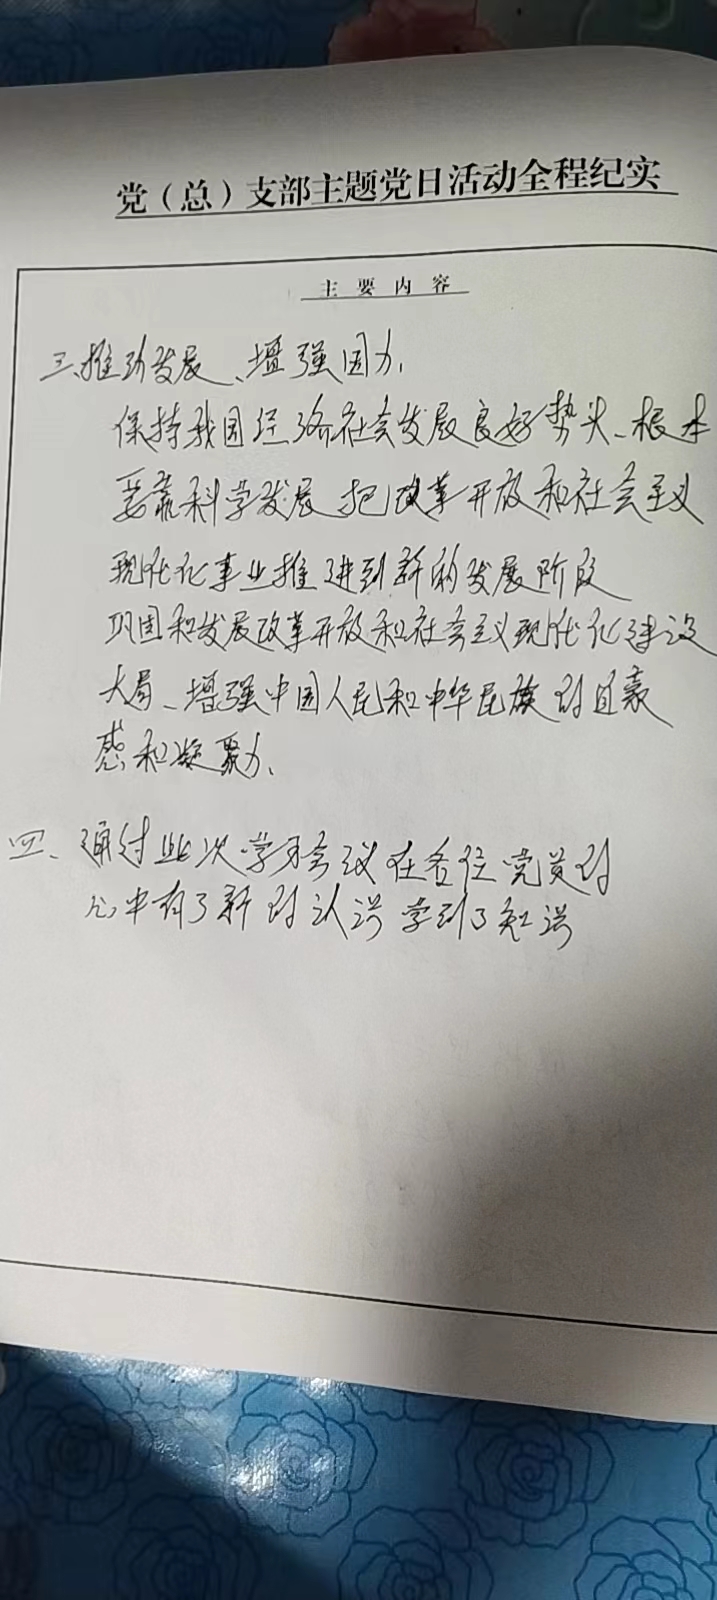 党（总）支部主题党日活动全程纪实
主要内容
三、推动发展、增强国力、
保持我国经济社会发展良好势头、根本
要靠科学发展 把改革开放和社会主义
现代化事业推进到新的发展阶段
巩固和发展改革开放和社会主义现代化建设
大局、增强中国人民和中华民族的自豪
感和凝聚力、
四、通过此次学习会议在各位党员的
心中有了新的认识学到了知识